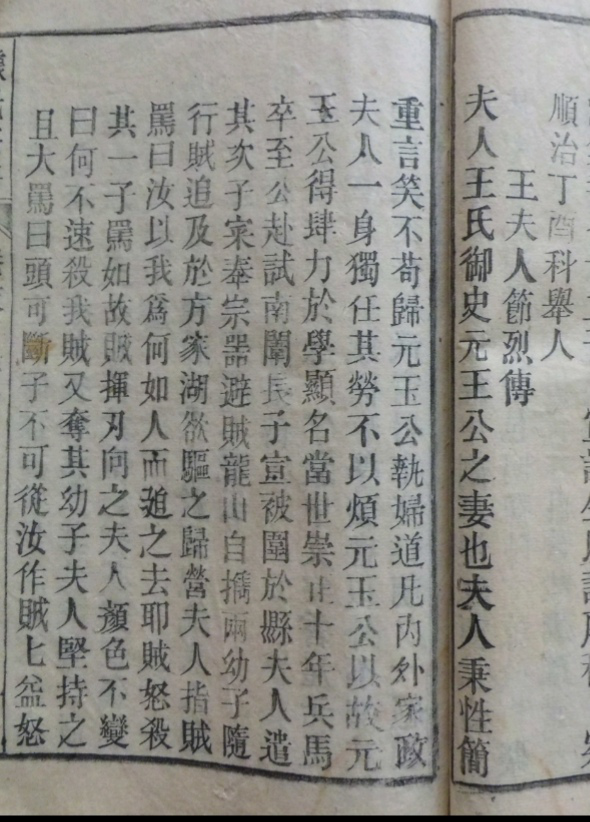 順治丁酉科舉人
王夫人節烈傳
夫人王氏御史元王公之妻也夫人秉性簡
重言笑不苟歸元玉公執婦道凡内外家政
夫人一身獨任其勞不以煩元玉公以故元
玉公得肆力於學顯名當世崇正十年兵馬
卒至公赴試南闈長子宣被圍於縣夫人遣
其次子寀奉宗器避賊龍山自攜兩幼子隨
行賊追及於方家湖欲驅之歸營夫人指賊
罵曰汝以我爲何如人而𨓜之去耶賊怒殺
其一子罵如故賊揮刃向之夫人顏色不變
曰何不速殺我賊又奪其幼子夫人堅持之
且大罵曰頭可斷子不可從汝作賊匕益怒